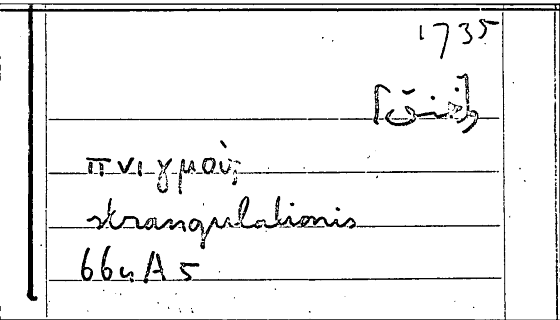 1735
πνιγμοῦ;
strangulationis
664 A 5